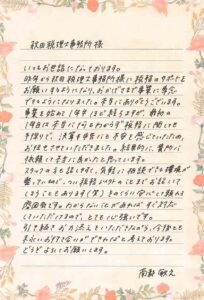 秋田税理士事務所 様
いつもお世話になっております。
昨年から秋田税理士事務所様に税務のサポートを
お願いするようになり、おかげさまで事業に専念
できるようになりました。本当にありがとうございます。
事業を始めて1年半ほど経ちますが、最初の
1年目は本当に何もわからず税務に関しても
手探りで、決算や申告にも不安を感じていたため、
お任せさせていただきました。結果的に、貴所に
依頼して本当に良かったと思っています。
スタッフの方も話しやすく、気軽に相談できる環境が
整っているので、つい税務以外のことまでお話しして
しまうこともあります(笑)そのくらい安心して頼れる
関係です。わからないことがあれば すぐ対応
していただけるので、とても心強いです。
引き続きお力添えをいただきながら、今後とも
末永いお付き合いができればと考えております。
どうぞよろしくお願いします。
南部 敏之